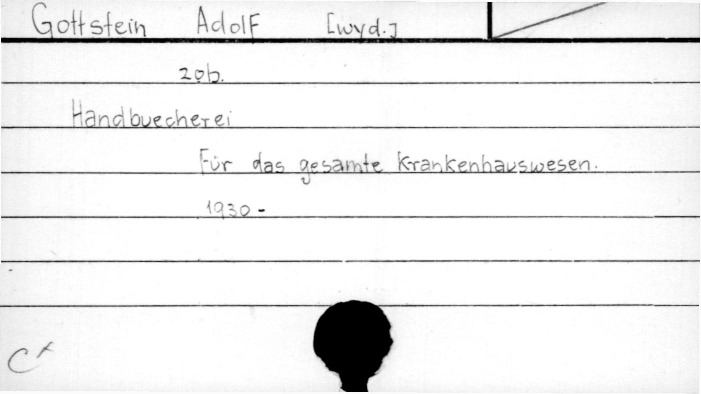 Gottstein Adolf [wyd.]
zob.
Handbuecherei
Für das gesamte Krankenhauswesen.
1930-
C+